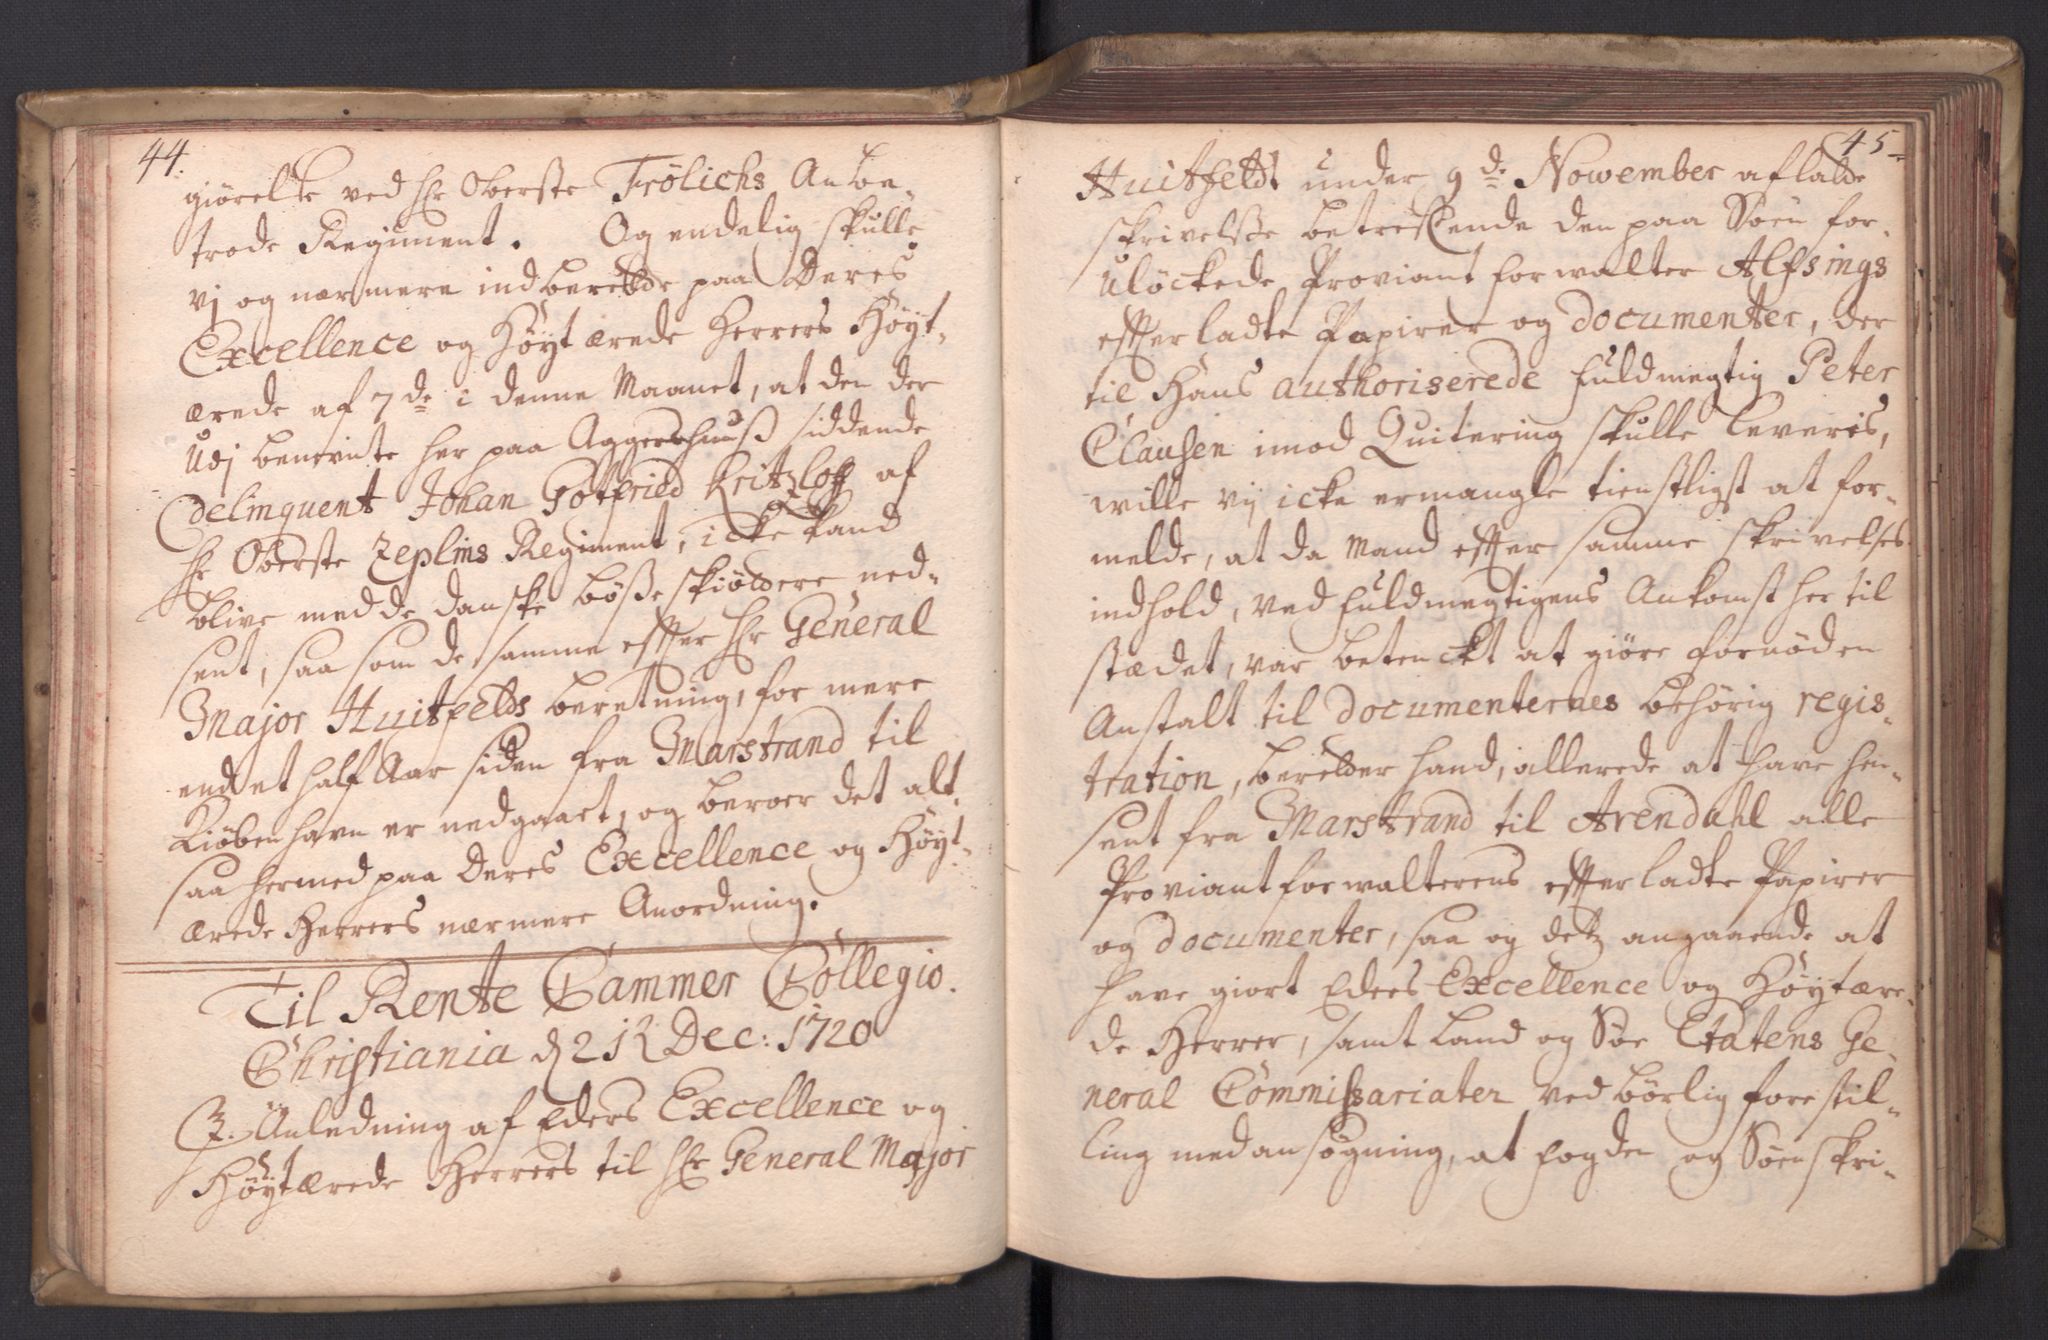 44.
giörelte ved Hr Oberste Frölichs Anbe-
trode Regiment. Og endelig skulle
vj og nærmere indberette paa Deres
Excellence og Höyt ærede Herrers Höyt-
ærede af 7de i denne Maanet, at den der
Udj benevnte her paa Aggershuuß siddende
delinquent Johan Gotfried Kritzloff af
Hr Oberste Zeplins Regiment, icke kand
blive med de danske bösseskiöttere ned-
sent, saa som de samme effter Hr General
Major Huitfelds beretning, for mere
end et half Aar siden fra Marstrand til
Kiöbenhavn er nedgaaet, og beroer det alt
saa hermed paa Deres Excellence og Höyt-
ærede Herrers nærmere Anordning.
Til Rente Cammer Collegio.
Christiania d 21 Dec: 1720
J Anledning af Eders Excellence og
Höytærede Herrers til Hr General Major
45
Huitfeldt under 9de November afladte
skrivelße betreffende den paa Söen for-
ulöckede Proviantforwalter Alfsings
effterladte Papirer og documenter, der
til Hans authoriserede fuldmegtig Peter
Clausen imod Quitering skulle leveris,
wille vij icke ermangle tienstligst at for-
melde, at da Mand effter samme skrivelses
indhold, ved fuldmegtigens Ankomst her til
stædet, var betenckt at giöre fornöden
Anstalt til documenternes behörig regis-
tration, beretter hand, allerede at have hen-
sent fra Marstrand til Arendahl alle
Proviantforwalterens effterladte Papirer
og documenter, saa og detz angaaende at
have giort Eders Excellence og Höytære-
de Herrer, samt Land og Söe Etatens Ge-
neral Commissariater ved börlig forestil-
ling med ansögning, at fogden og Sörenskri-